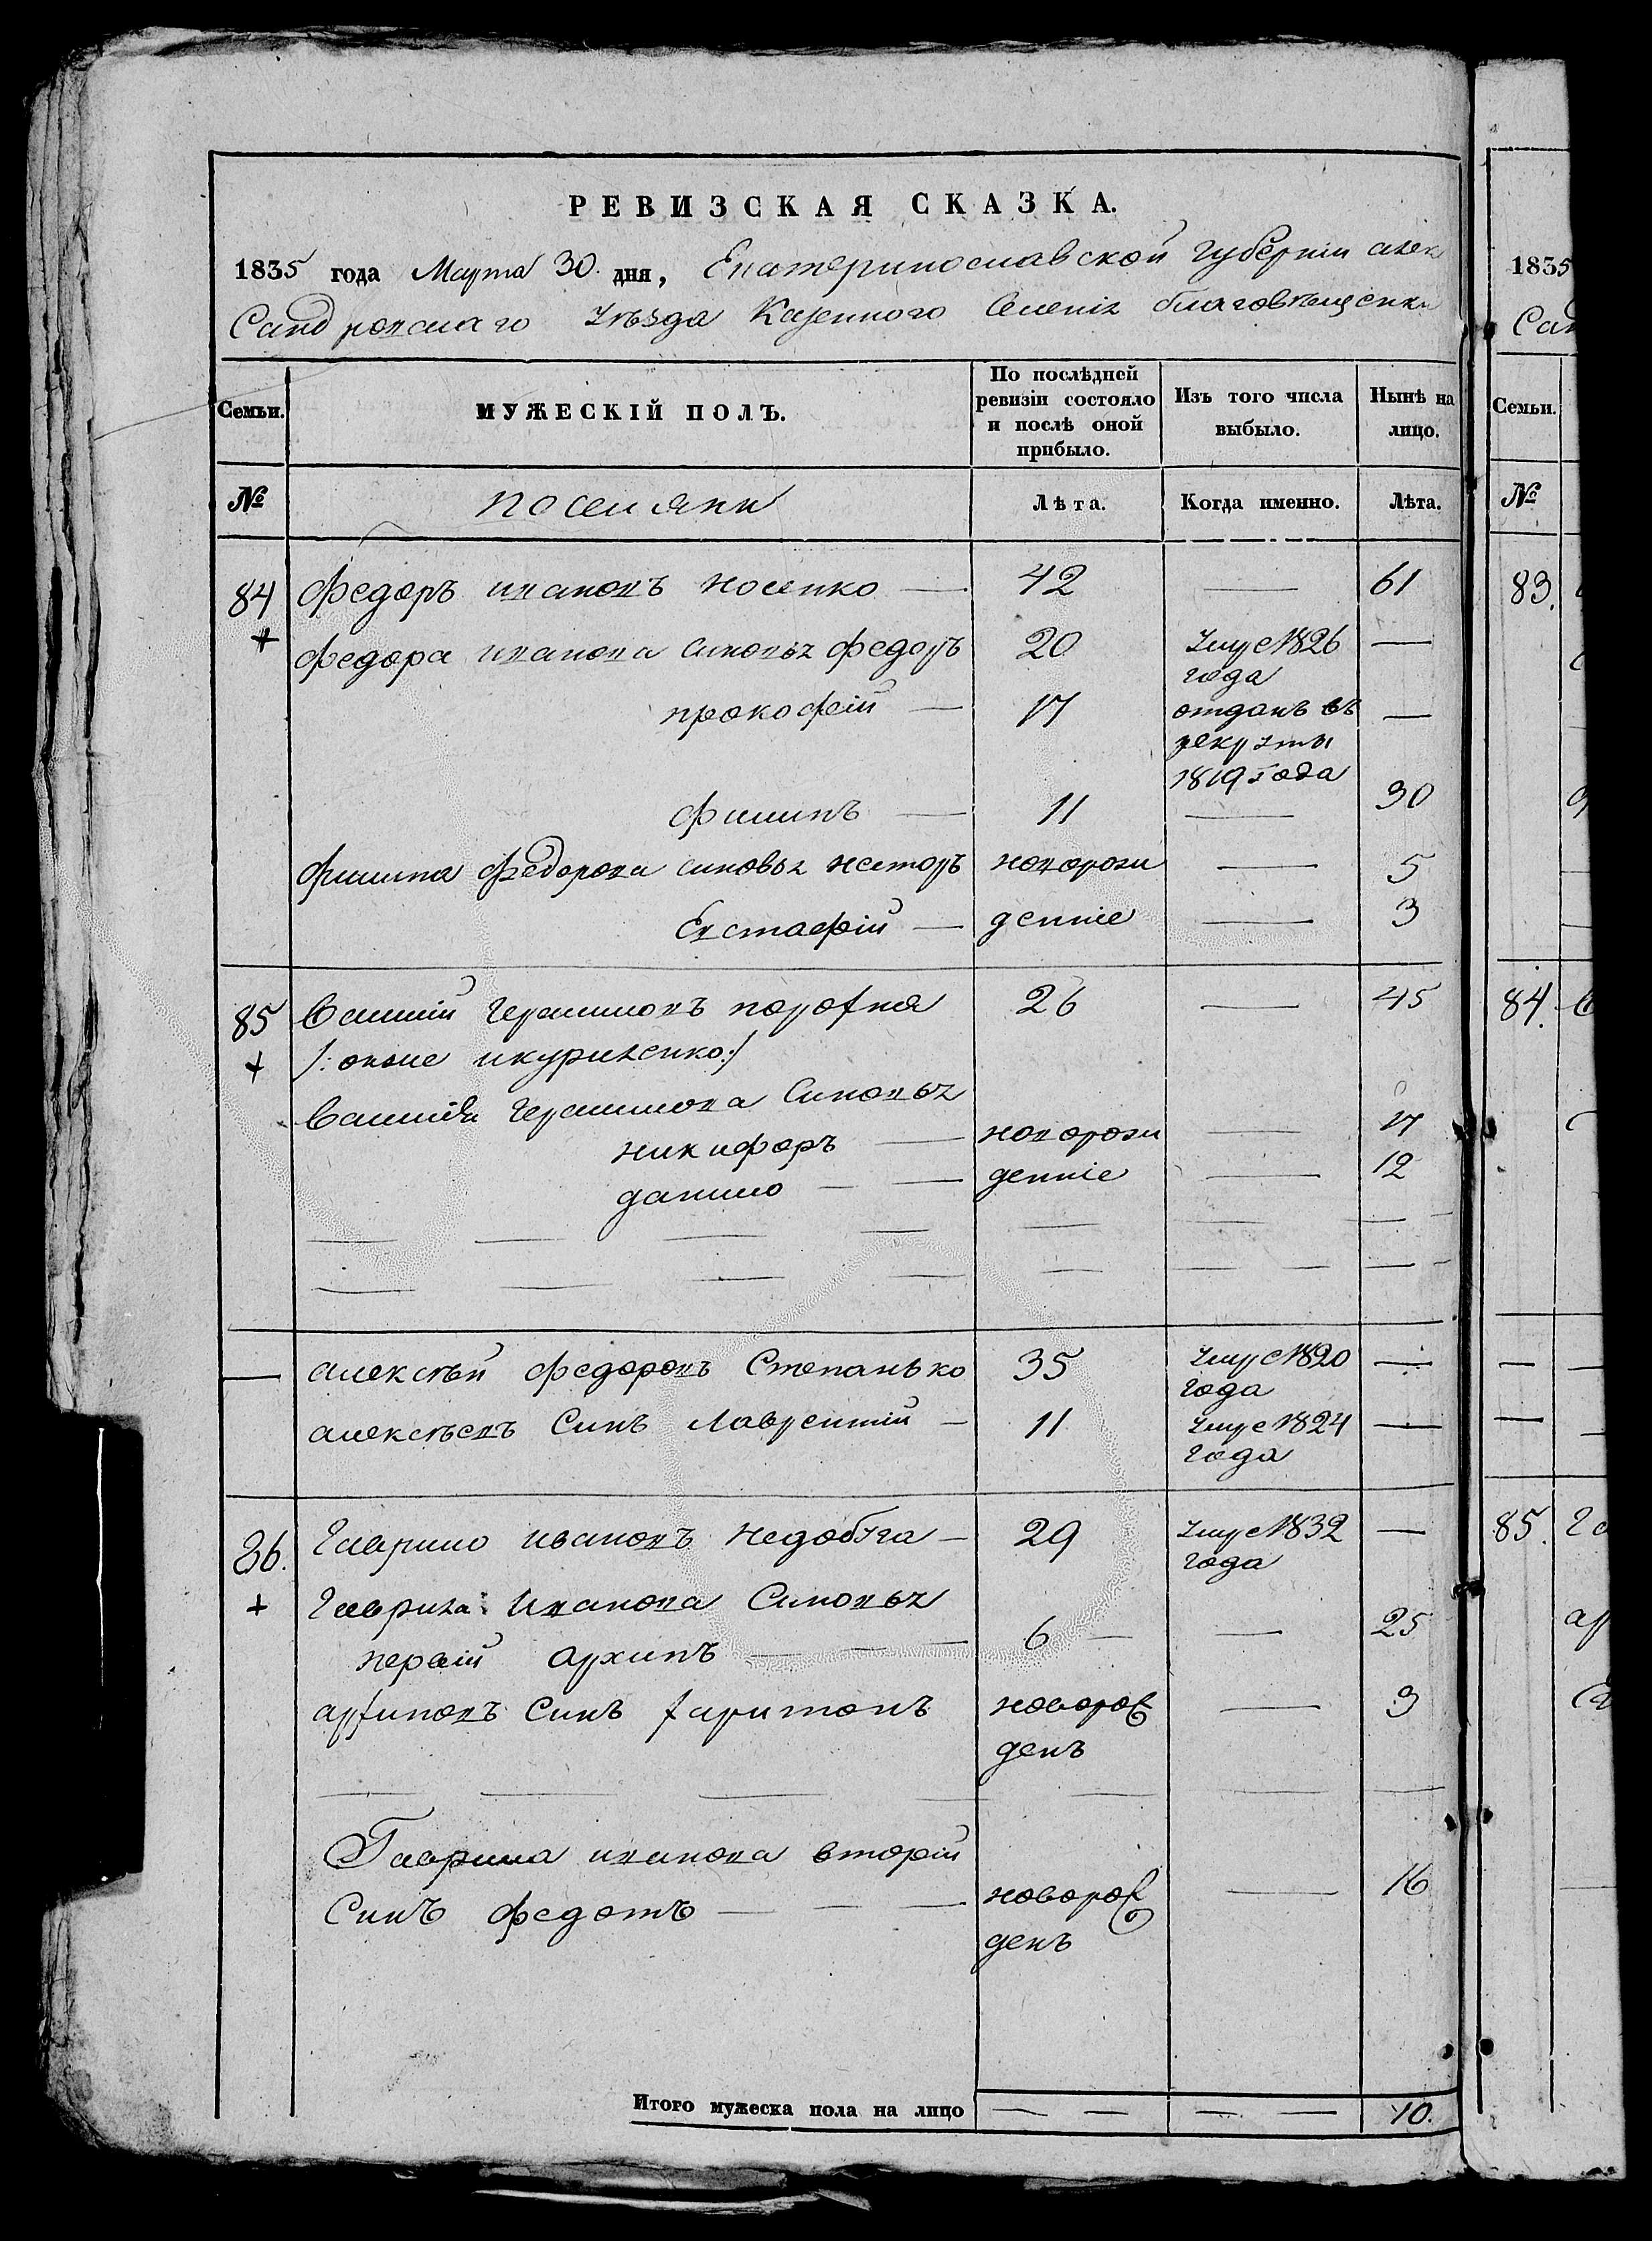 РЕВИЗСКАЯ СКАЗКА.
1835 года Марта 30. дня, Екатеринославской губернии алек
Сандровскаго уѣзда Казенного Селенія благовѣщенки
Семьи. МУЖЕСКІЙ ПОЛЪ. По послѣдней ревизіи состояло и послѣ оной прибыло. Изъ того числа выбыло. Нынѣ на лицо.
№ поселяни Лѣта. Когда именно. Лѣта.
84 Федоръ ивановъ носенко — 42 — 61
+ федора иванова синовья федоръ 20 умре 1826 —
года
прокофій — 17 отданъ въ —
рекруты
1819 года
филипъ — 11 — 30
филипа федорова синовья несторъ новорож — 5
Евстафій — деніе — 3
85 Василій герасимовъ порохня 26 — 45
+ /: онже шкуриченко:/
Василія герасимова Синовья
никифоръ — новорож — 17
данило — — деніе — 12
— алексѣй федоровъ Степанько 35 умре 1820 —
года
алексѣевъ Синъ Лаврентій — 11 умре 1824 —
года
86. Гаврило ивановъ недобѣга — 29 умре 1832 —
года
+ Гаврила Иванова Синовья
первій архипъ — — — 6 — — 25
архиповъ Синъ харитонъ новорож — 3
денъ
Гаврила иванова вторій
Синъ федотъ — — — новорож — 16
денъ
Итого мужеска пола на лицо — — — — 10.
1835
Сан
Семьи.
№
83.
84.
—
—
85. Га
ар